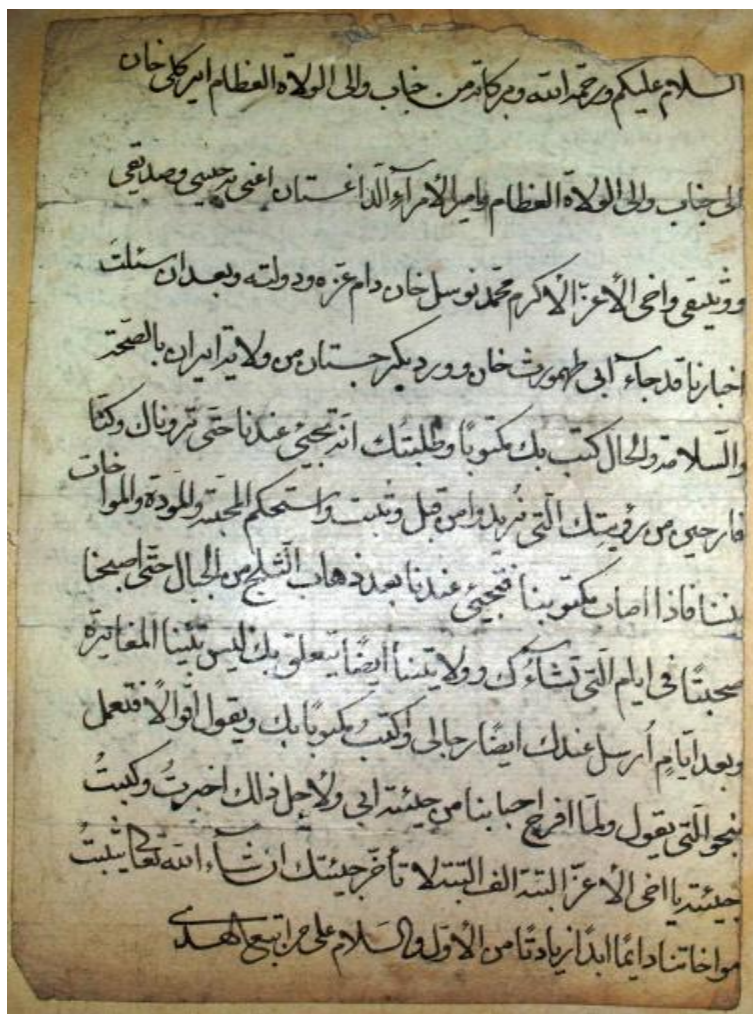 السلام عليكم ورحمة الله وبركاته من جناب والى الولاة العظام امير كلى خان
الى جناب والى الولاة العظام وامير الأمرآء الداغستان اعنى به حبيبى وصديقى
ووثيقى واخى الأعزّ الأكرم محمّد نوسل خان دام عزّه ودولته وبعد ان سئلتَ
اخبارنا قد جاء ابى طهمورث خان وورد بكرجستان من ولاية ايران بالصّحّة
والسّلامة والحال كتب بك مكتوبًا وطلبتُك انّه تجيئ عندنا حتّى نرونك وكنّا
فارحين من رؤيتك الّتى نُريد وامن قبل وثبت واستحكم المحبّة والمودّة والمواخات
بيننا فاذا اصاب مكتوبنا فتجيئ عندنا بعد ذهاب الثّلج من الجبال حتّى اصبحنا
صحبتًا فى ايام الّتى تشآءك وولايتنا ايضًا يتعلّق بك ليس بيننا المغايرة
وبعد ايّامٍ اُرسل عندك ايضًا رجالى واكتبُ مكتوبًا بك ويقول اقوالًا فتعمل
بنحو الّتى يقول ولمّا افرح احبابنا من جيئة ابى ولاجل ذالك اخبرتُ وكتبتُ
جيئته يا اخى الأعزّ البتة الف البتة لا تأخّر جيئتك ان شآء الله تعالى يثبتُ
مواخاتنا دايمًا ابدًا زيادتًا من الأوّل والسّلام على من اتبع الهدى